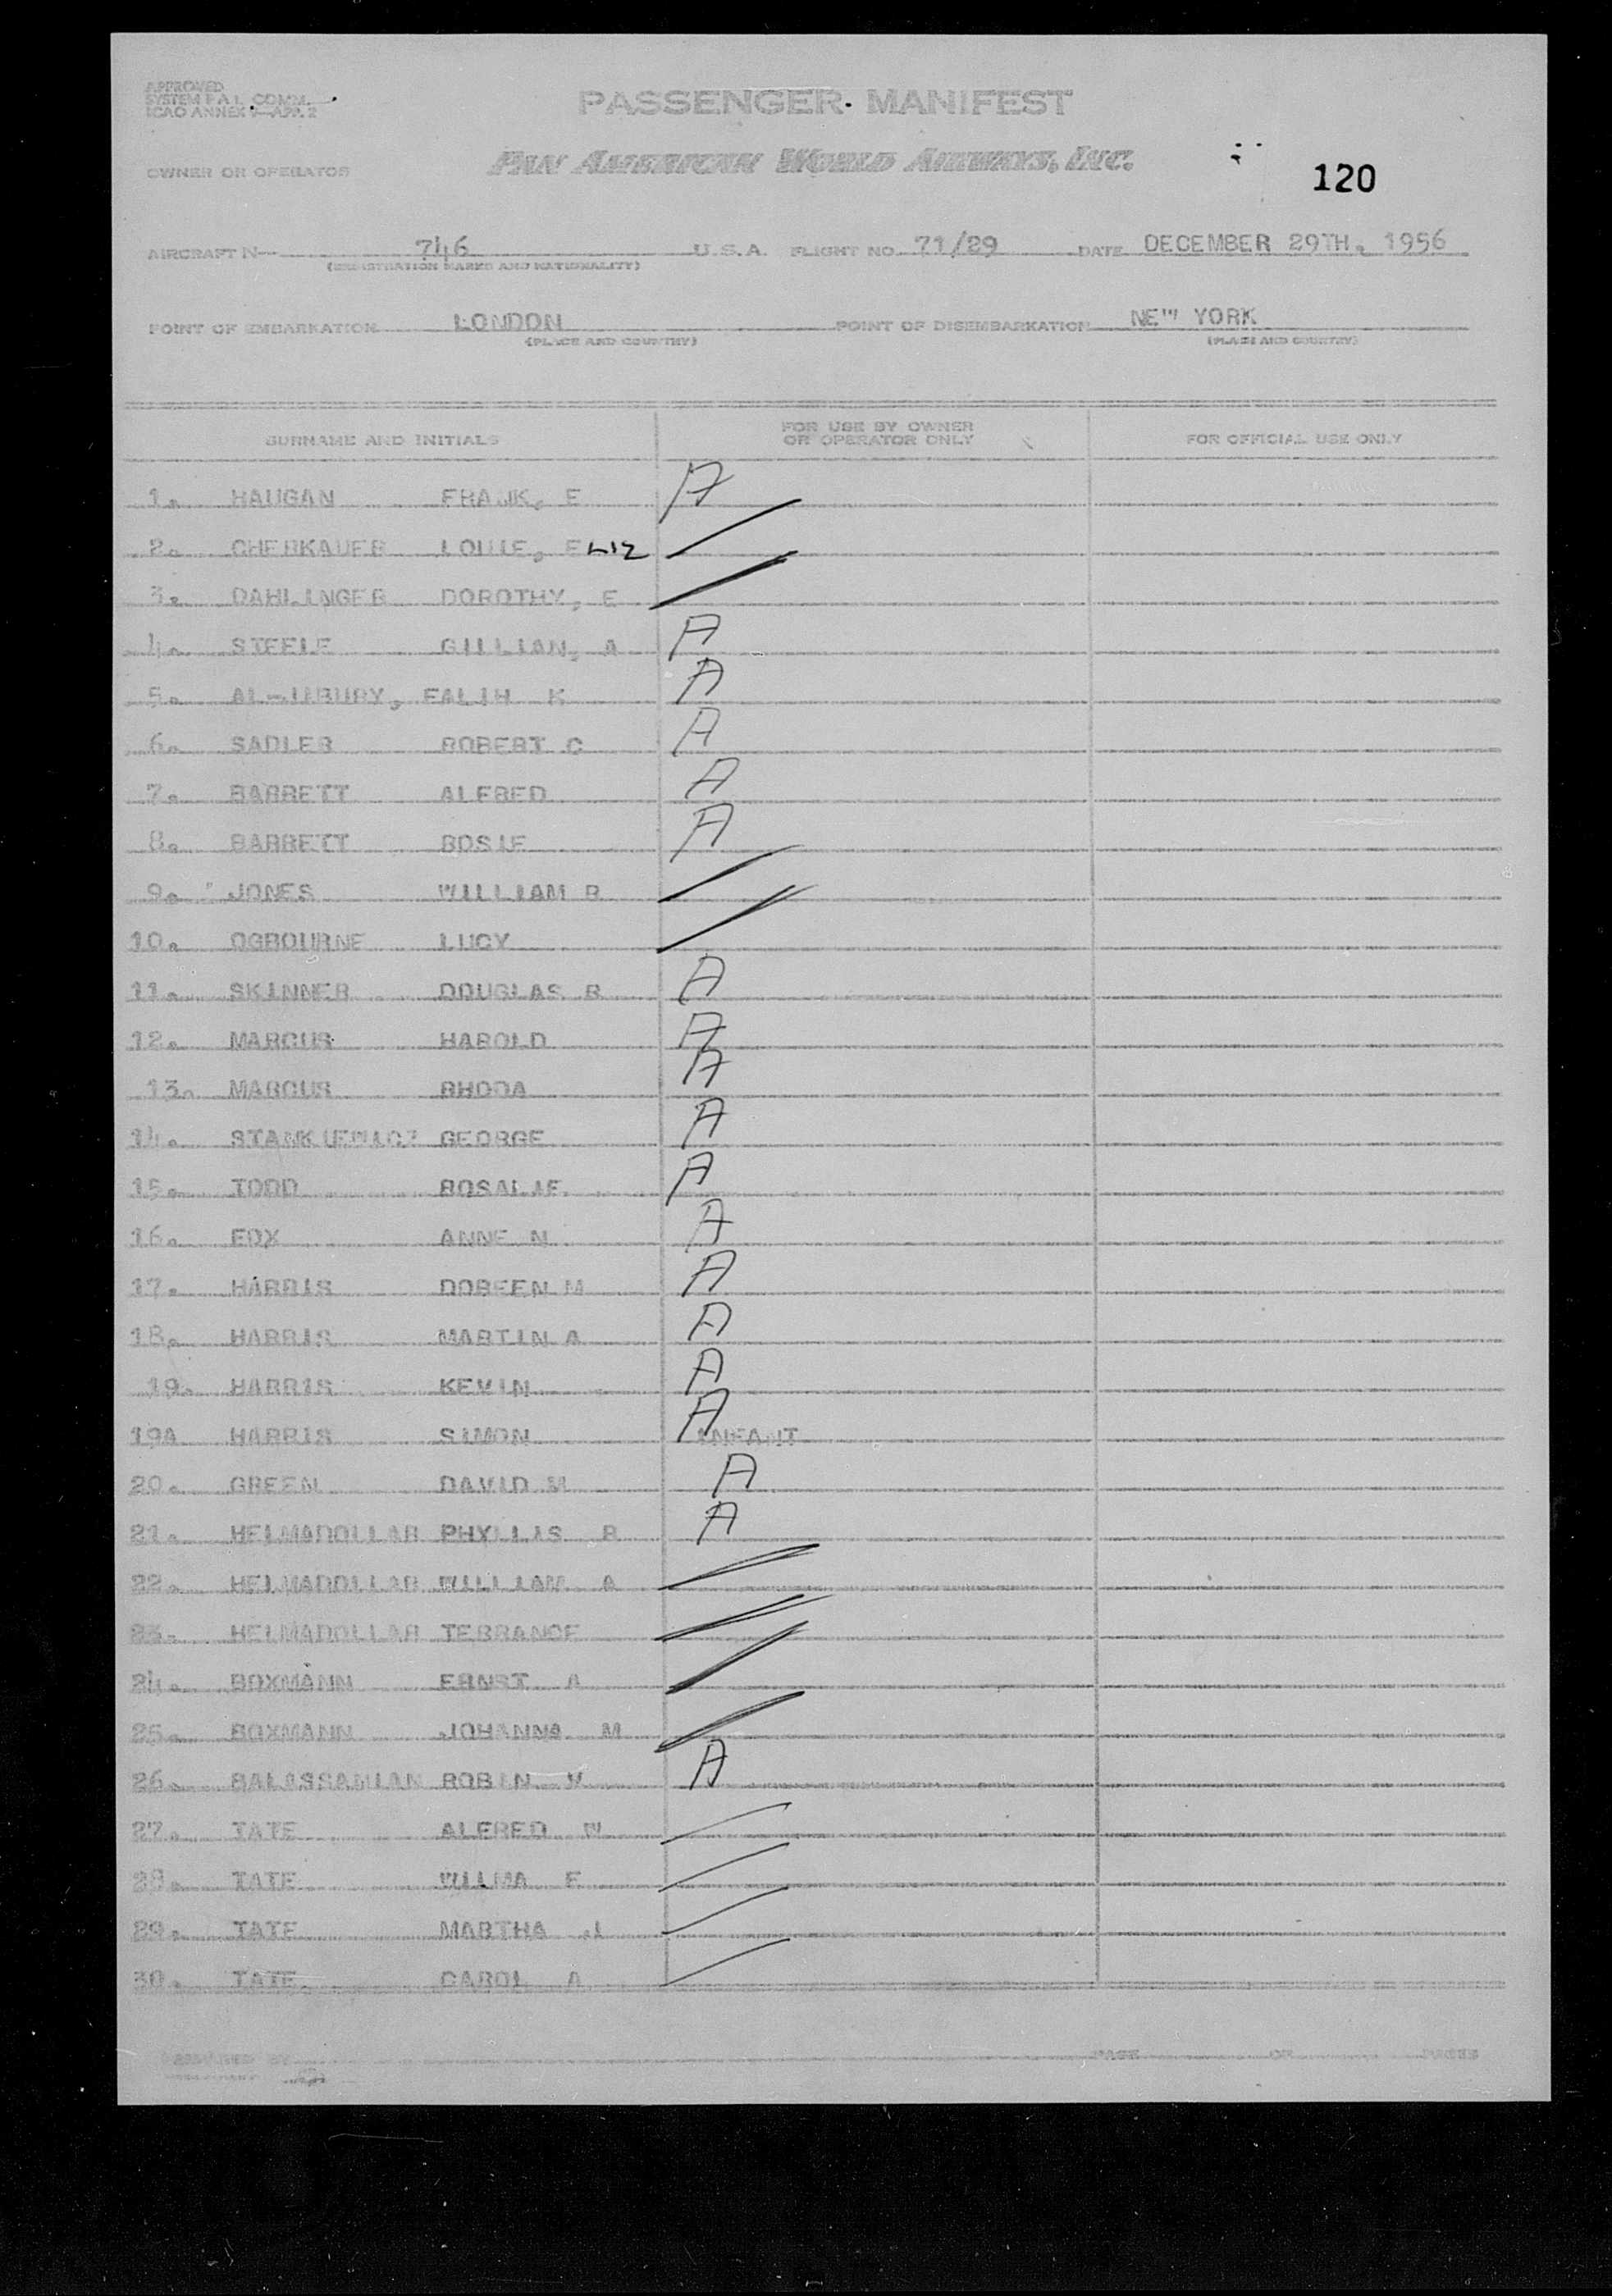 APPROVED
SYSTEM F A L COMM.
ICAO ANNEX 9-APP. 2
PASSENGER MANIFEST
OWNER OR OPERATOR
PAN AMERICAN WORLD AIRWAYS, INC.
120
AIRCRAFT N- 746 U.S.A. FLIGHT NO. 71/29 DATE DECEMBER 29TH. 1956
(REGISTRATION MARKS AND NATIONALITY)
POINT OF EMBARKATION LONDON POINT OF DISEMBARKATION NEW YORK
(PLACE AND COUNTRY) (PLACE AND COUNTRY)
SURNAME AND INITIALS FOR USE BY OWNER OR OPERATOR ONLY FOR OFFICIAL USE ONLY
1. HAUGAN FRANK, E A
2. CHERKAUER LOUIE, ELIZ
3. DAHLINGER DOROTHY, E
4. STEELE GILLIAN, A A
5. AL-JUBURY, FALIH K A
6. SADLER ROBERT C A
7. BARRETT ALFRED A
8. BARRETT ROSIE A
9. JONES WILLIAM R
10. OGBOURNE LUCY
11. SKINNER DOUGLAS R A
12. MARCUS HAROLD A
13. MARCUS RHODA A
14. STANKIEWICZ GEORGE A
15. TODD ROSALIE A
16. FOX ANNE N A
17. HARRIS DOREEN M A
18. HARRIS MARTIN A A
19. HARRIS KEVIN A
19A HARRIS SIMON A INFANT
20. GREEN DAVID M A
21. HELMADOLLAR PHYLLIS R A
22. HELMADOLLAR WILLIAM A
23. HELMADOLLAR TERRANCE
24. BOXMANN ERNST A
25. BOXMANN JOHANNA M
26. BALASSANIAN ROBIN V A
27. TATE ALFRED W
28. TATE WILMA E
29. TATE MARTHA J
30. TATE CAROL A
PAGE OF PAGES